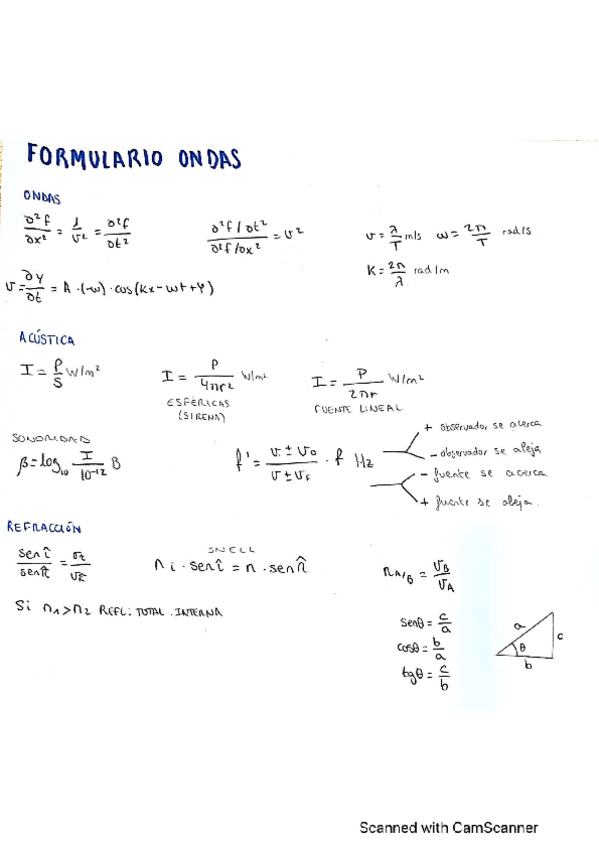 FORMULARIO ONDAS
ONDAS
∂²f/∂x² = 1/v² = ∂²f/∂t²
∂²f/∂t² / ∂²f/∂x² = v²
v = λ/T m/s ω = 2π/T rad/s
K = 2π/λ rad/m
v = ∂y/∂t = A·(-w)·cos(Kx-wt+φ)
ACÚSTICA
I = P/S W/m²
I = P/4πr² W/m²
ESFÉRICAS
(SIRENA)
I = P/2πr W/m²
FUENTE LINEAL
SONORIDAD
β = log₁₀ I/10⁻¹² B
f' = v ± v₀/v ± v_F · f Hz
+ observador se acerca
- observador se aleja
- fuente se acerca
+ fuente se aleja.
REFRACCIÓN
SNELL
ni · sen î = n · sen r̂
n A/B = v_B/v_A
Si n₁ > n₂ REFL: TOTAL. INTERNA
senθ = c/a
cosθ = b/a
tgθ = c/b
a
c
θ
b
Scanned with CamScanner